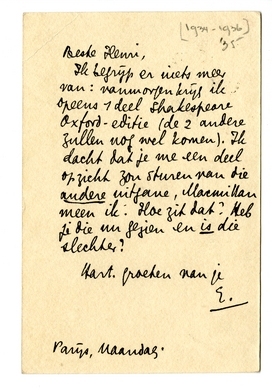 [1934-1936]
'35
Beste Henri,
Ik begrijp er niets meer
van: vanmorgen krijg ik
opeens 1 deel Shakespeare
Oxford-editie (de 2 andere
zullen nog wel komen). Ik
dacht dat je me een deel
op zicht zou sturen van die
andere uitgave, Macmillan
meen ik. Hoe zit dat? Heb
je die nu gezien en is die
slechter?
Hart. groeten van je
E.
Parijs, Maandag.